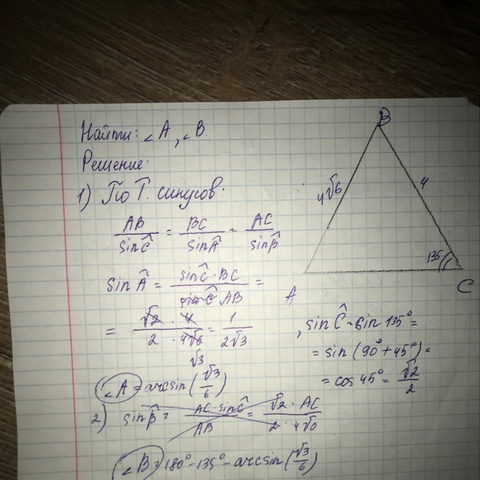 Найти: ∠A, ∠B
Решение:
1) По Т. синусов.
AB/sinĈ = BC/sinÂ = AC/sinB̂
sinÂ = sinĈ · BC / AB =
= √2 · 4 / 2 · 4√6 = 1/2√3
√3
, sinĈ = sin 135° =
= sin (90° + 45°) =
= cos 45° = √2/2
∠A = arcsin(√3/6)
2) sinB̂ = AC sinĈ / AB = √2 · AC / 2 · 4√6
∠B = 180° - 135° - arcsin(√3/6)
B
4√6
4
135
A
C